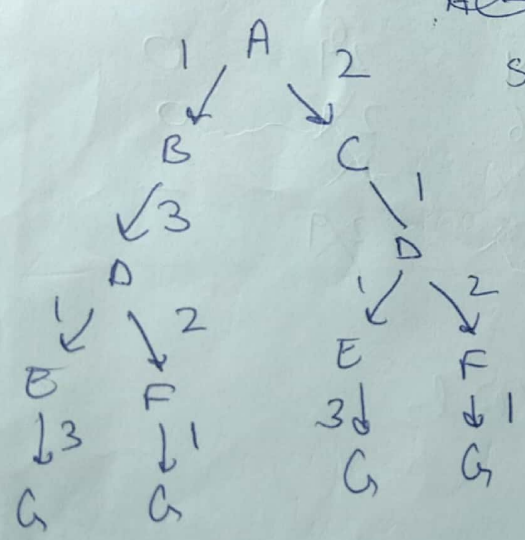 1 A 2
B C
3 1
D D
1 2 1 2
E F E F
3 1 3 1
G G G G